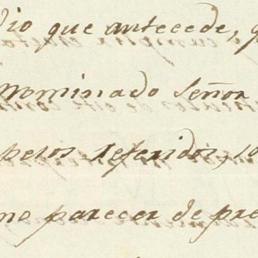 dio que antecede, q
Nominado Señor
pesos referidos, se
no parecer de pre